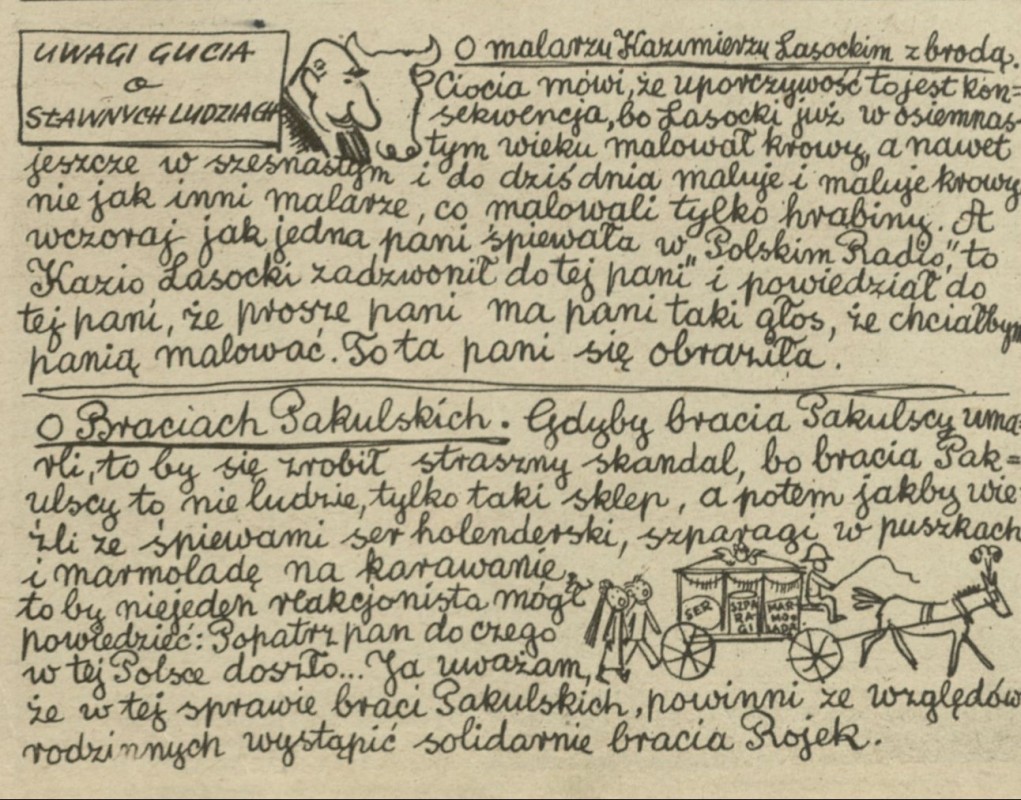 UWAGI GUCIA
o
SŁAWNYCH LUDZIACH
O malarzu Kazimierzu Lasockim z brodą.
Ciocia mówi, że uporczywość to jest kon=
sekwencja, bo Lasocki już w osiemnas-
tym wieku malował krowy, a nawet
jeszcze w szesnastym i do dziś dnia maluje i maluje krowy
nie jak inni malarze, co malowali tylko hrabiny. A
wczoraj jak jedna pani śpiewała w „Polskim Radio", to
Kazio Lasocki zadzwonił do tej pani" i powiedział do
tej pani, że prosze pani ma pani taki głos, że chciałbym
panią malować. To ta pani się obraziła.
O Braciach Pakulskich. Gdyby bracia Pakulscy uma-
rli, to by się zrobił straszny skandal, bo bracia Pak=
ulscy to nie ludzie, tylko taki sklep, a potem jakby wie-
źli ze śpiewami ser holenderski, szparagi w puszkach
i marmoladę na karawanie,
to by niejeden reakcjonista mógł
powiedzieć: Popatrz pan do czego
w tej Polsce doszło... Ja uważam,
że w tej sprawie braci Pakulskich, powinni ze względów
rodzinnych wystąpić solidarnie bracia Rojek.
SER
SZPA
RA-
GI
MAR-
MO-
LADA